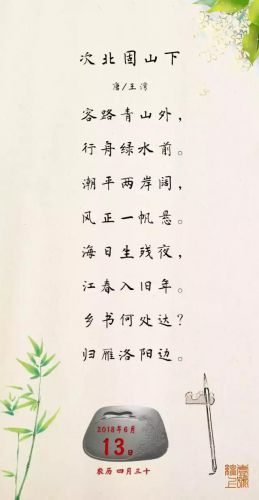 次北固山下
唐/王湾
客路青山外，
行舟绿水前。
潮平两岸阔，
风正一帆悬。
海日生残夜，
江春入旧年。
乡书何处达？
归雁洛阳边。
2018年6月
13日
农历 四月三十